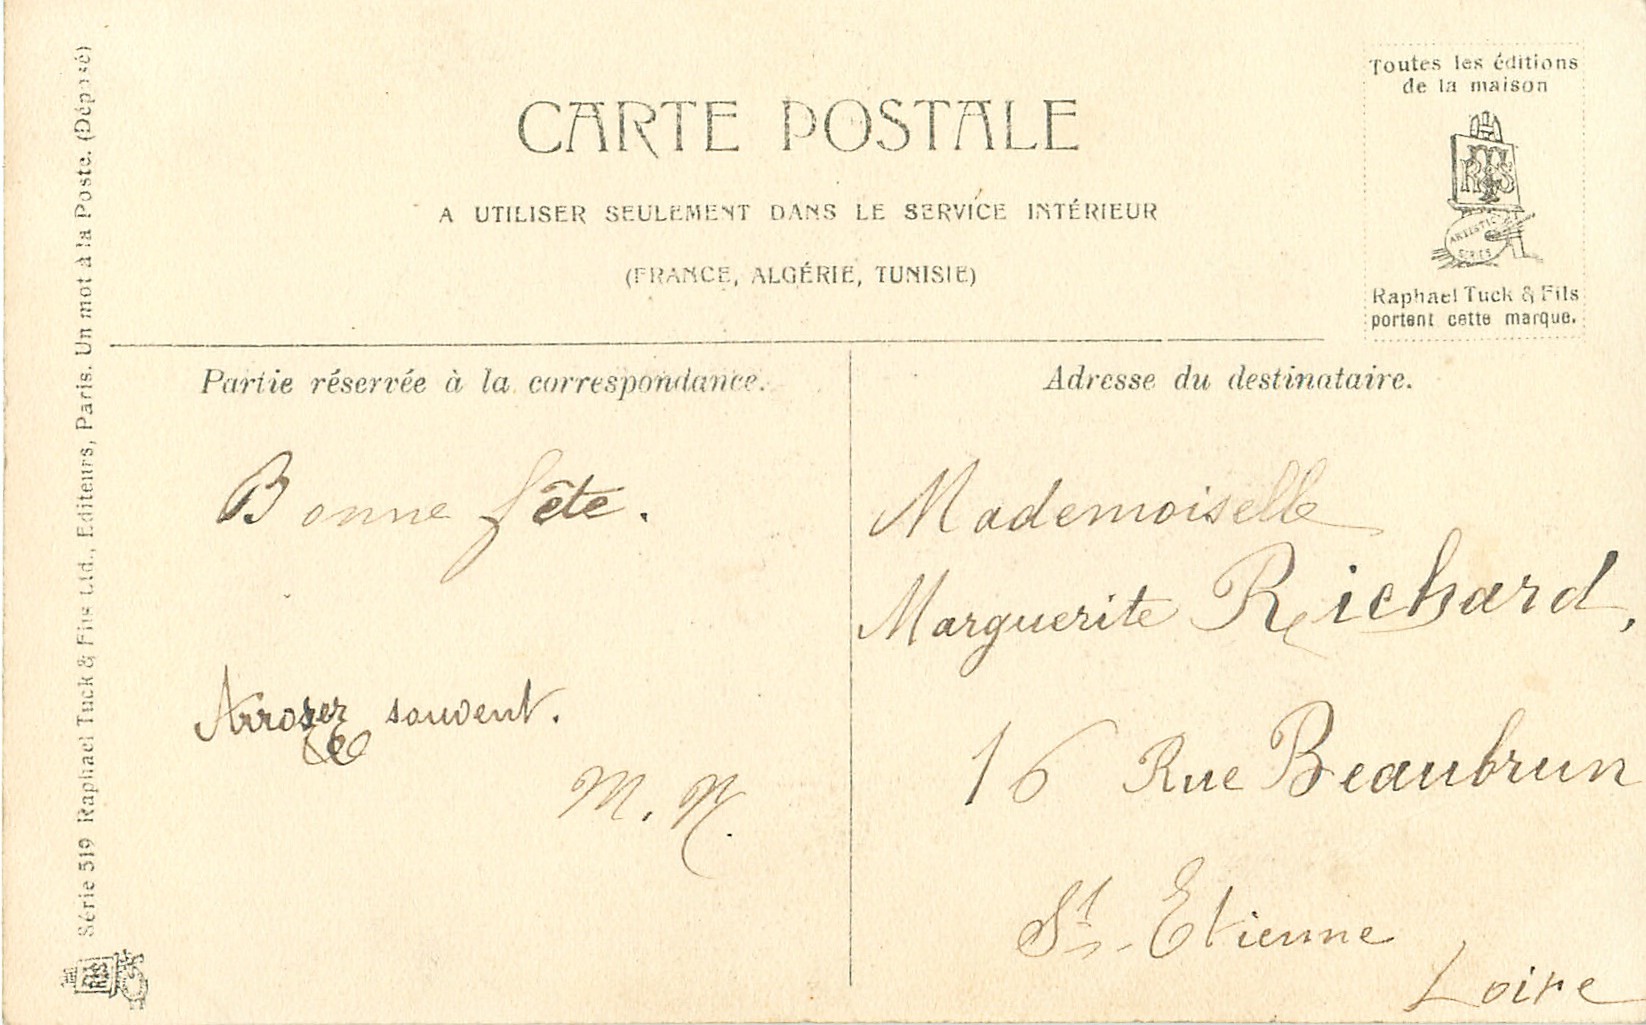 CARTE POSTALE
A UTILISER SEULEMENT DANS LE SERVICE INTÉRIEUR
(FRANCE, ALGÉRIE, TUNISIE)
Toutes les éditions
de la maison
RTS
ARTISTIC
SERIES
Raphael Tuck & Fils
portent cette marque.
Série 519 Raphael Tuck & Fils Ltd., Editeurs, Paris. Un mot à la Poste. (Déposé)
Partie réservée à la correspondance.
Bonne fête.
Arroser souvent.
M. N.
Adresse du destinataire.
Mademoiselle
Marguerite Richard,
16 Rue Beaubrun
St-Etienne
Loire